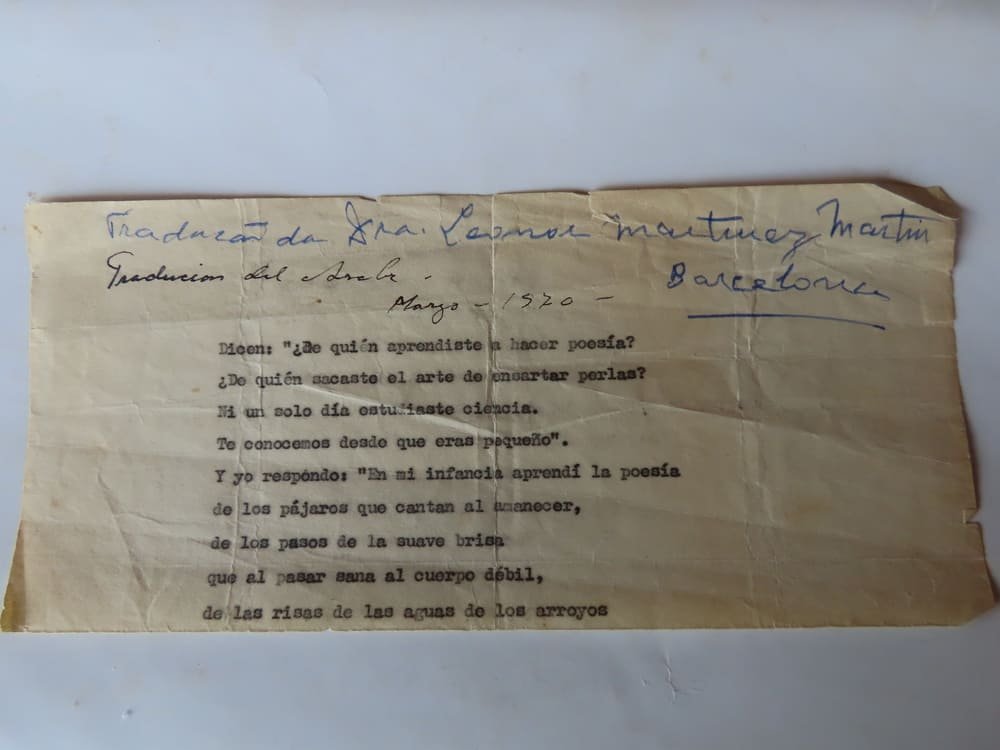 Tradução da Dra. Leonor Martinez Martin
Traducion del Arabe -
Barcelona
Marzo - 1970 -
Dicen: "¿De quién aprendiste a hacer poesía?
¿De quién sacaste el arte de ensartar perlas?
Ni un solo día estudiaste ciencia.
Te conocemos desde que eras pequeño".
Y yo respóndo: "En mi infancia aprendí la poesía
de los pájaros que cantan al amanecer,
de los pasos de la suave brisa
que al pasar sana al cuerpo débil,
de las risas de las aguas de los arroyos